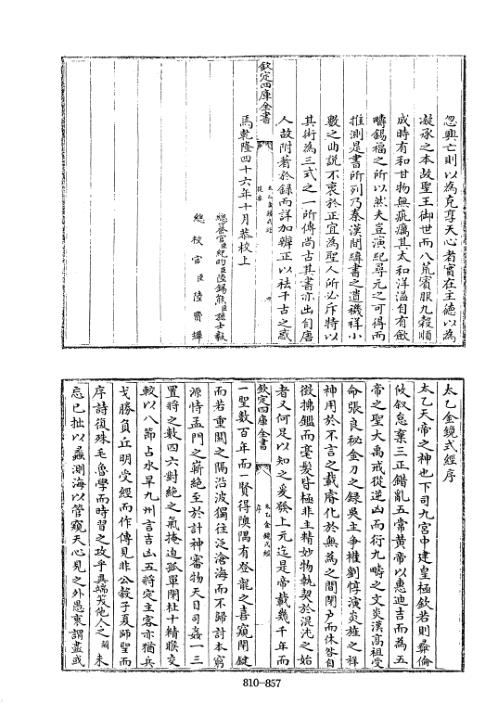 忽興亡則以為克享天心者實在主德以為
凝承之本故聖王御世而八荒賓服九穀順
成時有和甘物無疵癘其太和洋溢自有斂
疇錫福之所以然夫豈演紀尋元之可得而
推測是書所列乃秦漢間緯書之遺禨祥小
數之曲說不衷於正宜為聖人所必斥特以
其術為三式之一所傳尚古其書亦出自唐
人故附著於錄而詳加辨正以袪千古之惑
欽定四庫全書
太乙金鏡式經
提要
焉乾隆四十六年十月恭校上
總纂官臣紀昀臣陸錫熊臣孫士毅
總校官臣陸費墀
太乙金鏡式經序
太乙天帝之神也下司九宮中建皇極欽若則彝倫
攸叙怠棄三正錯亂五常黃帝以惠迪吉而為五
帝之聖大禹戒從逆凶而衍九疇之文炎漢高祖受
命張良秘金刀之録吳主爭權劉惇演炎旌之祥
神用於不言之載睿化於無為之間閉户而休咎自
徵拂鑑而毫髮皆極非主精妙物執契於混沌之始
者又何足以知之爰發上元迄是帝載幾千年而
欽定四庫全書
太乙金鏡式經
序
一聖數百年而一賢得陳隅有登龍之喜窺閉鍵
而若重關之隔沿波獨往泛滄海而不歸討本窮
源恃孟門之嶄絕至於計神審物天目司姦一三
置將之數四六對絕之氣掩迫孤單閉杜十精𥈭交
較以八節占水旱九州言吉凶五將定主客亦猶兵
戈勝負丘明受經而作傳見非公穀子夏師聖而
序詩復殊毛魯學而時習之攻乎異端哉他人之
忘已拙以蠡測海以管窺天心見之外愚衷謂盡或
810-857